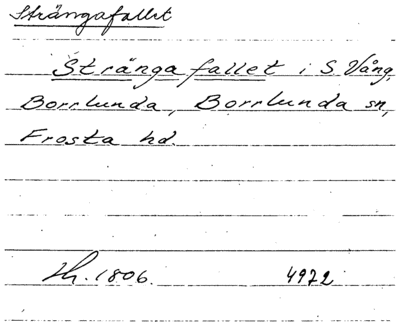 Strängafallet
Stränga fallet i S. Vång,
Borrlunda, Borrlunda sn,
Frosta hd.
Lh. 1806. 4972